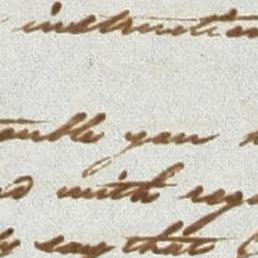 instruction
trouble you
with rega
say that